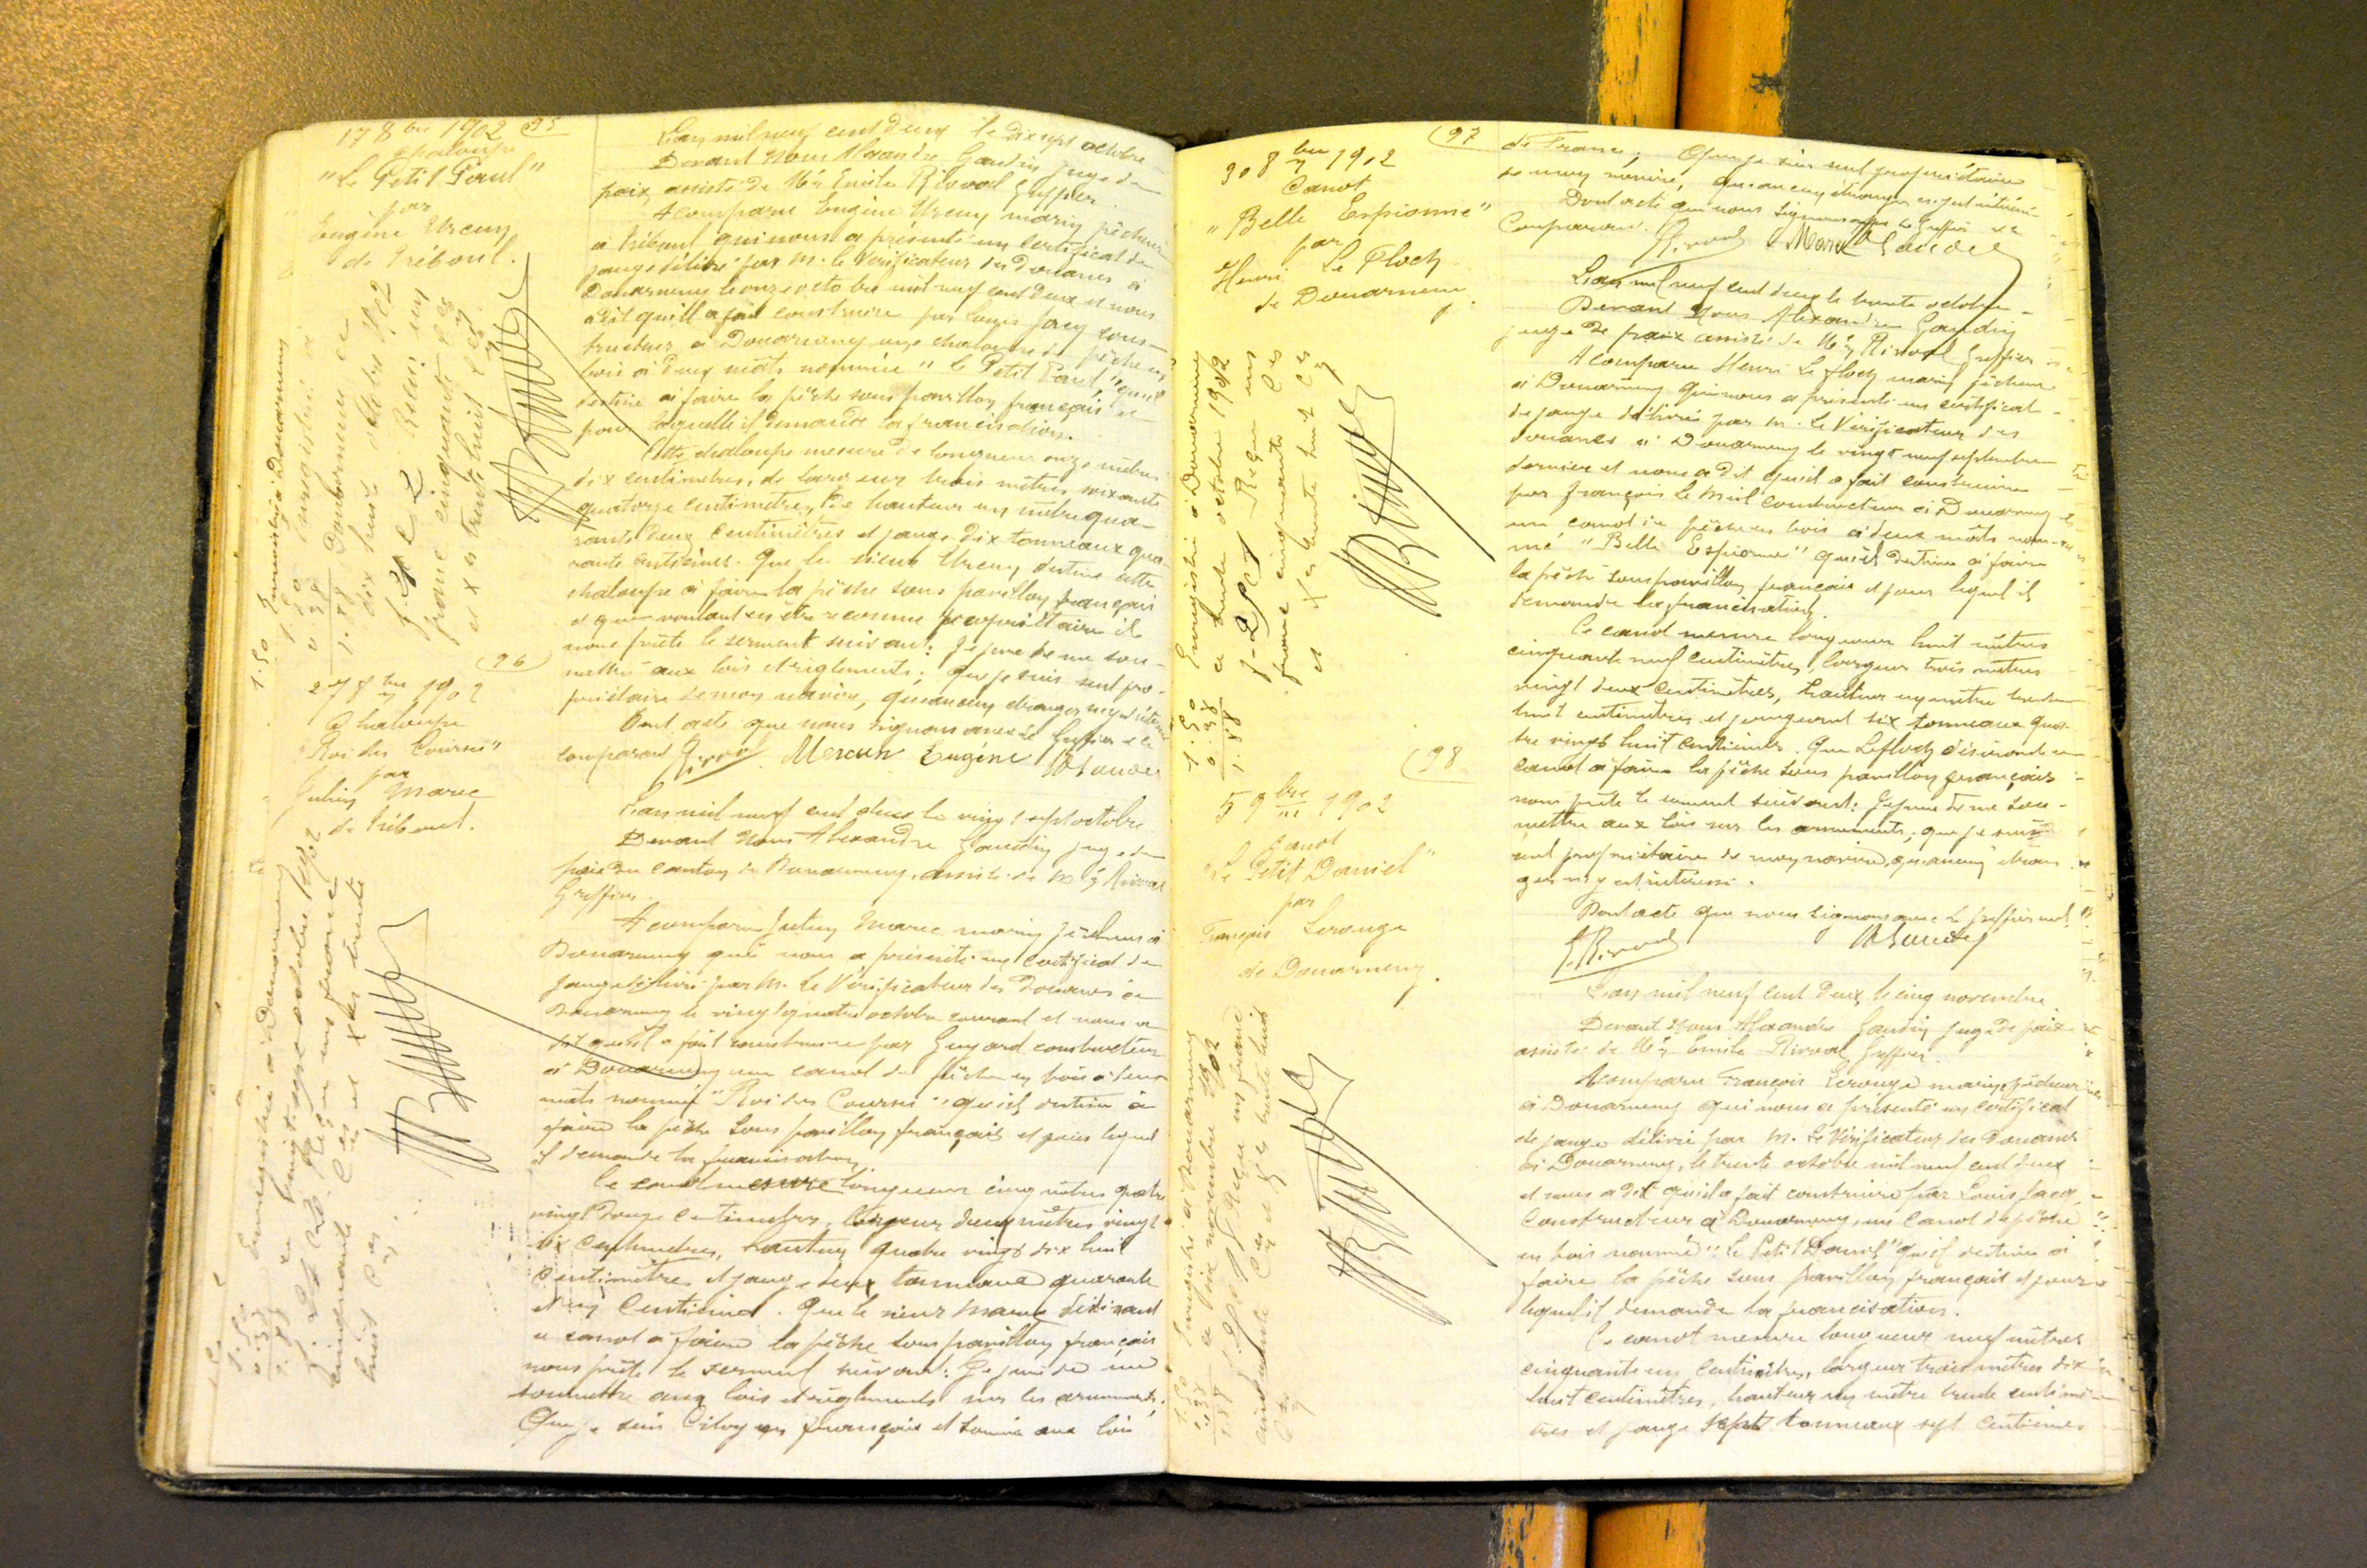 17 8bre 1902 95
chaloupe
"Le Petit Paul"
par
Eugène Urcun
de Tréboul.
L'an mil neuf cent deux le dix sept octobre
Devant Nous Alexandre Gaudin juge de
paix, assisté de Me Emile Rivoal greffier.
A comparu Eugène Urcun marin pêcheur
à Tréboul qui nous a présenté un certificat de
jauge délivré par M. le Vérificateur des Douanes à
Douarnenez le onze octobre mil neuf cent deux et nous
a dit qu'il a fait construire par Louis Jacq cons-
tructeur à Douarnenez une chaloupe de pêche en
bois à deux mâts nommée "Le Petit Paul", qu'il
destine à faire la pêche sous pavillon français et
pour laquelle il demande la francisation.
Cette chaloupe mesure de longueur onze mètres
dix centimètres, de largeur trois mètres soixante
quatorze centimètres, de hauteur un mètre qua-
rante deux centimètres et jauge dix tonneaux qua-
rante centièmes. Que le sieur Urcun destine cette
chaloupe à faire la pêche sous pavillon français
et que voulant en être reconnu propriétaire il
nous prête le serment suivant: Je jure de me sou-
mettre aux lois et règlements; que je suis seul pro-
priétaire de mon navire, qu'aucun étranger n'y est intéressé
Dont acte que nous signons avec le greffier et le
comparant Rivoal Mercun Eugène Gaudin
Enregistré à Douarnenez
dix huit octobre 1902
franc cinquante ces
et Xes trente huit ces
1.50
0.38
1.88
96
27 8bre 1902
Chaloupe
"Roi des Courses"
par
Julien Marec
de Tréboul.
L'an mil neuf cent deux le vingt sept octobre
Devant Nous Alexandre Gaudin juge de
paix du canton de Douarnenez, assisté de Me Rivoal
Greffier.
A comparu Julien Marec marin pêcheur à
Douarnenez qui nous a présenté un certificat de
jauge délivré par M. Le Vérificateur des Douanes à
Douarnenez le vingt quatre octobre courant et nous a
dit qu'il a fait construire par Guyard constructeur
à Douarnenez un canot de pêche en bois à deux
mâts nommé "Roi des Courses" qu'il destine à
faire la pêche sous pavillon français et pour lequel
il demande la francisation
Ce canot mesure longueur cinq mètres quatre
vingt douze centimètres, largeur deux mètres vingt
six centimètres, hauteur quatre vingt dix huit
centimètres et jauge deux tonneaux quarante
et un centièmes. Que le sieur Marec destinant
ce canot à faire la pêche sous pavillon français
nous prête le serment suivant: Je jure de me
soumettre aux lois et règlements sur les armements.
Que je suis citoyen français et soumis aux lois
Enregistré à Douarnenez
ce vingt sept octobre 1902
Reçu un franc
cinquante Ces et Xes trente
huit Ces
1.50
0.38
1.88
97
de France; Que je suis seul propriétaire
de mon navire, qu'aucun étranger n'y est intéressé
Dont acte que nous signons avec le greffier et le
Comparant. Rivoal Marec Gaudin
30 8bre 1902
Canot
"Belle Espionne"
par
Henri Le Floch
de Douarnenez.
L'an mil neuf cent deux le trente octobre
Devant Nous Alexandre Gaudin
juge de paix assisté de Me Rivoal greffier
A comparu Henri Le Floch marin pêcheur
à Douarnenez qui nous a présenté un certificat
de jauge délivré par M. Le Vérificateur des
Douanes à Douarnenez le vingt neuf septembre
dernier et nous a dit qu'il a fait construire
par François Le Miol constructeur à Douarnenez
un canot de pêche en bois à deux mâts nom-
mé "Belle Espionne" qu'il destine à faire
la pêche sous pavillon français et pour lequel il
demande la francisation.
Ce canot mesure longueur huit mètres
cinquante neuf centimètres, largeur trois mètres
vingt deux centimètres, hauteur un mètre trente
huit centimètres et jaugeant six tonneaux qua-
tre vingt huit centièmes. Que Le Floch désirant ce
canot à faire la pêche sous pavillon français
nous prête le serment suivant: Je jure de me sou-
mettre aux lois sur les armements; que je suis
seul propriétaire de mon navire, qu'aucun étran-
ger n'y est intéressé.
Dont acte que nous signons avec le greffier seul
E. Rivoal Gaudin
Enregistré à Douarnenez
ce trente octobre 1902
Reçu un
franc cinquante Ces
et Xes trente huit Ces
1.50
0.38
1.88
98
5 9bre 1902
Canot
"Le Petit Daniel"
par
François Lerouge
de Douarnenez.
L'an mil neuf cent deux le cinq novembre
Devant Nous Alexandre Gaudin juge de paix
assisté de Me Emile Rivoal Greffier.
A comparu François Lerouge marin pêcheur
à Douarnenez qui nous a présenté un certificat
de jauge délivré par M. Le Vérificateur des Douanes
à Douarnenez, le trente octobre mil neuf cent deux
et nous a dit qu'il a fait construire par Louis Jacq
Constructeur à Douarnenez, un canot de pêche
en bois nommé "Le Petit Daniel" qu'il destine à
faire la pêche sous pavillon français et pour
lequel il demande la francisation.
Ce canot mesure longueur neuf mètres
cinquante un centimètres, largeur trois mètres dix
huit centimètres, hauteur un mètre trente centimè-
tres et jauge sept tonneaux sept centièmes
Enregistré à Douarnenez
ce cinq novembre 1902
Reçu un franc
cinquante Ces et Xes trente huit
Ces
1.50
0.38
1.88